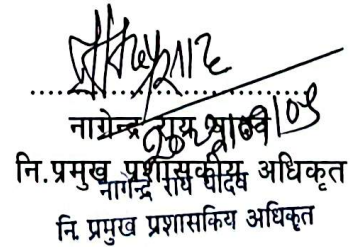 ..............................
नागेन्द्र राय यादव
नि.प्रमुख प्रशासकीय अधिकृत
नागेन्द्र राय यादव
नि. प्रमुख प्रशासकिय अधिकृत